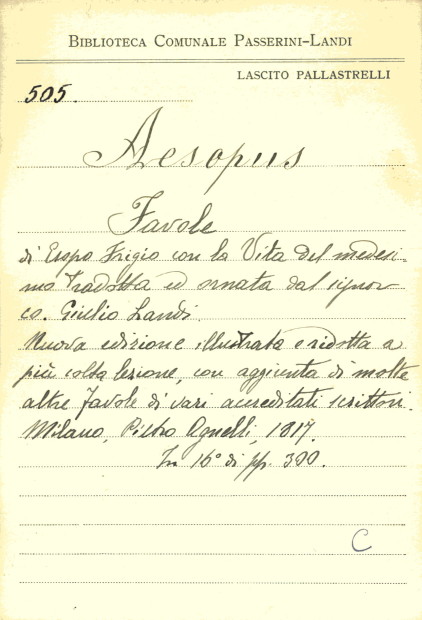 BIBLIOTECA COMUNALE PASSERINI-LANDI
LASCITO PALLASTRELLI
505.
Aesopus
Favole
di Esopo Frigio con la Vita del medesi-
mo tradotta ed ornata dal signor
co. Giulio Landi.
Nuova edizione illustrata e ridotta a
più colta lezione, con aggiunta di molte
altre Favole di vari accreditati scrittori.
Milano, Pietro Agnelli, 1817.
In 16° di pp. 300.
C